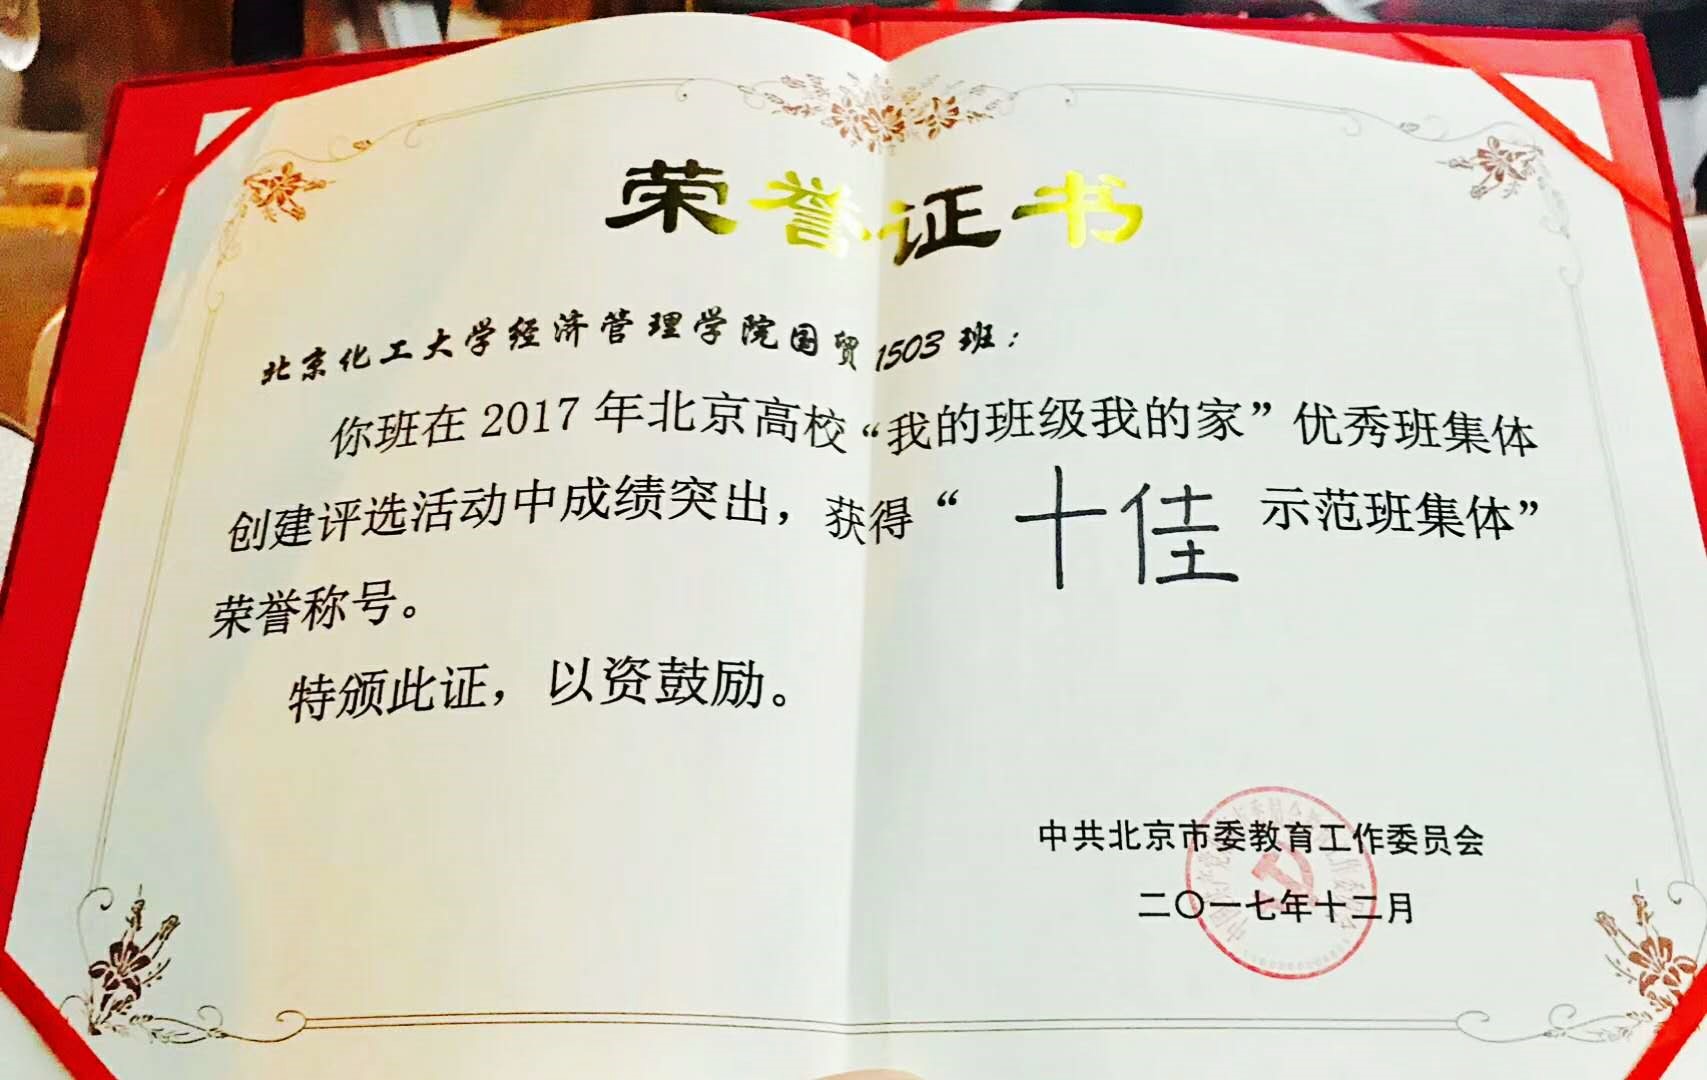 荣誉证书
北京化工大学经济管理学院国贸1503班：
你班在2017年北京高校“我的班级我的家”优秀班集体
创建评选活动中成绩突出，获得“十佳示范班集体”
荣誉称号。
特颁此证，以资鼓励。
中共北京市委教育工作委员会
二〇一七年十二月